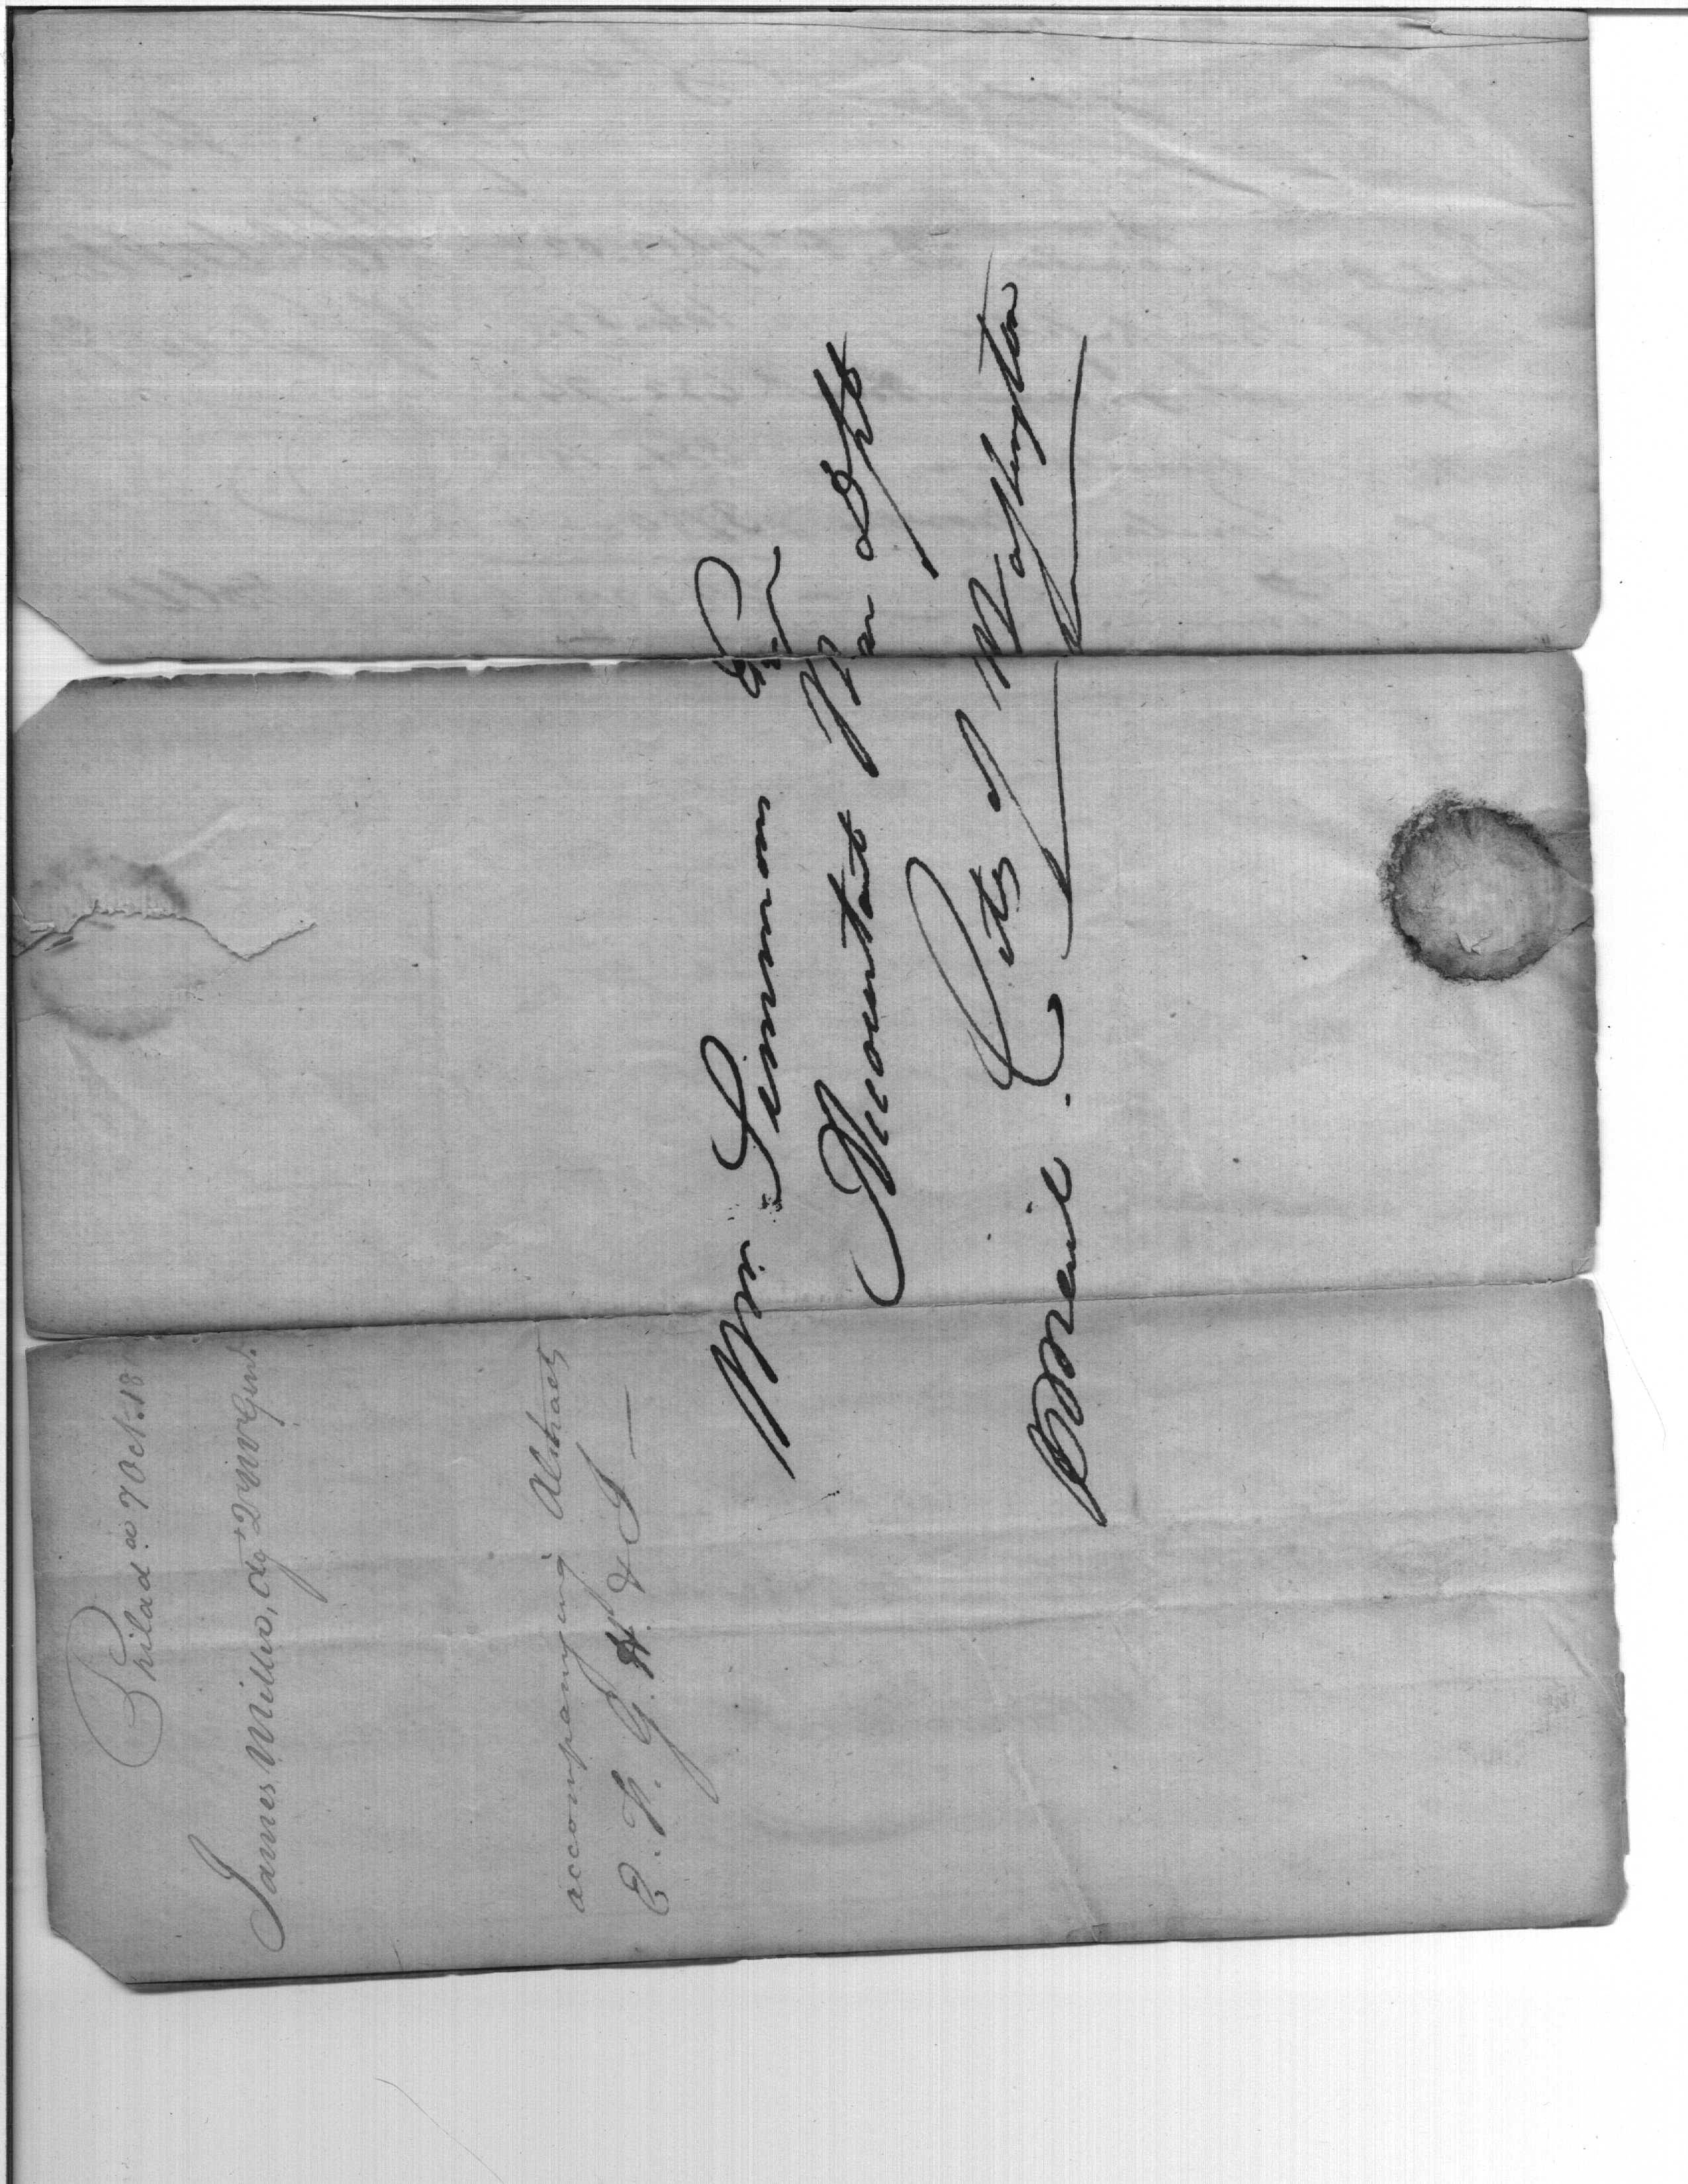 Philad.a 7 Oct. 18
James Miller, Ag.t 2 Mr Genl.
accompanying Abstracts
E. F. G. H. & I —
Wm. Simmons Esqr
Accountant War Dept
City of Washington
Mail.